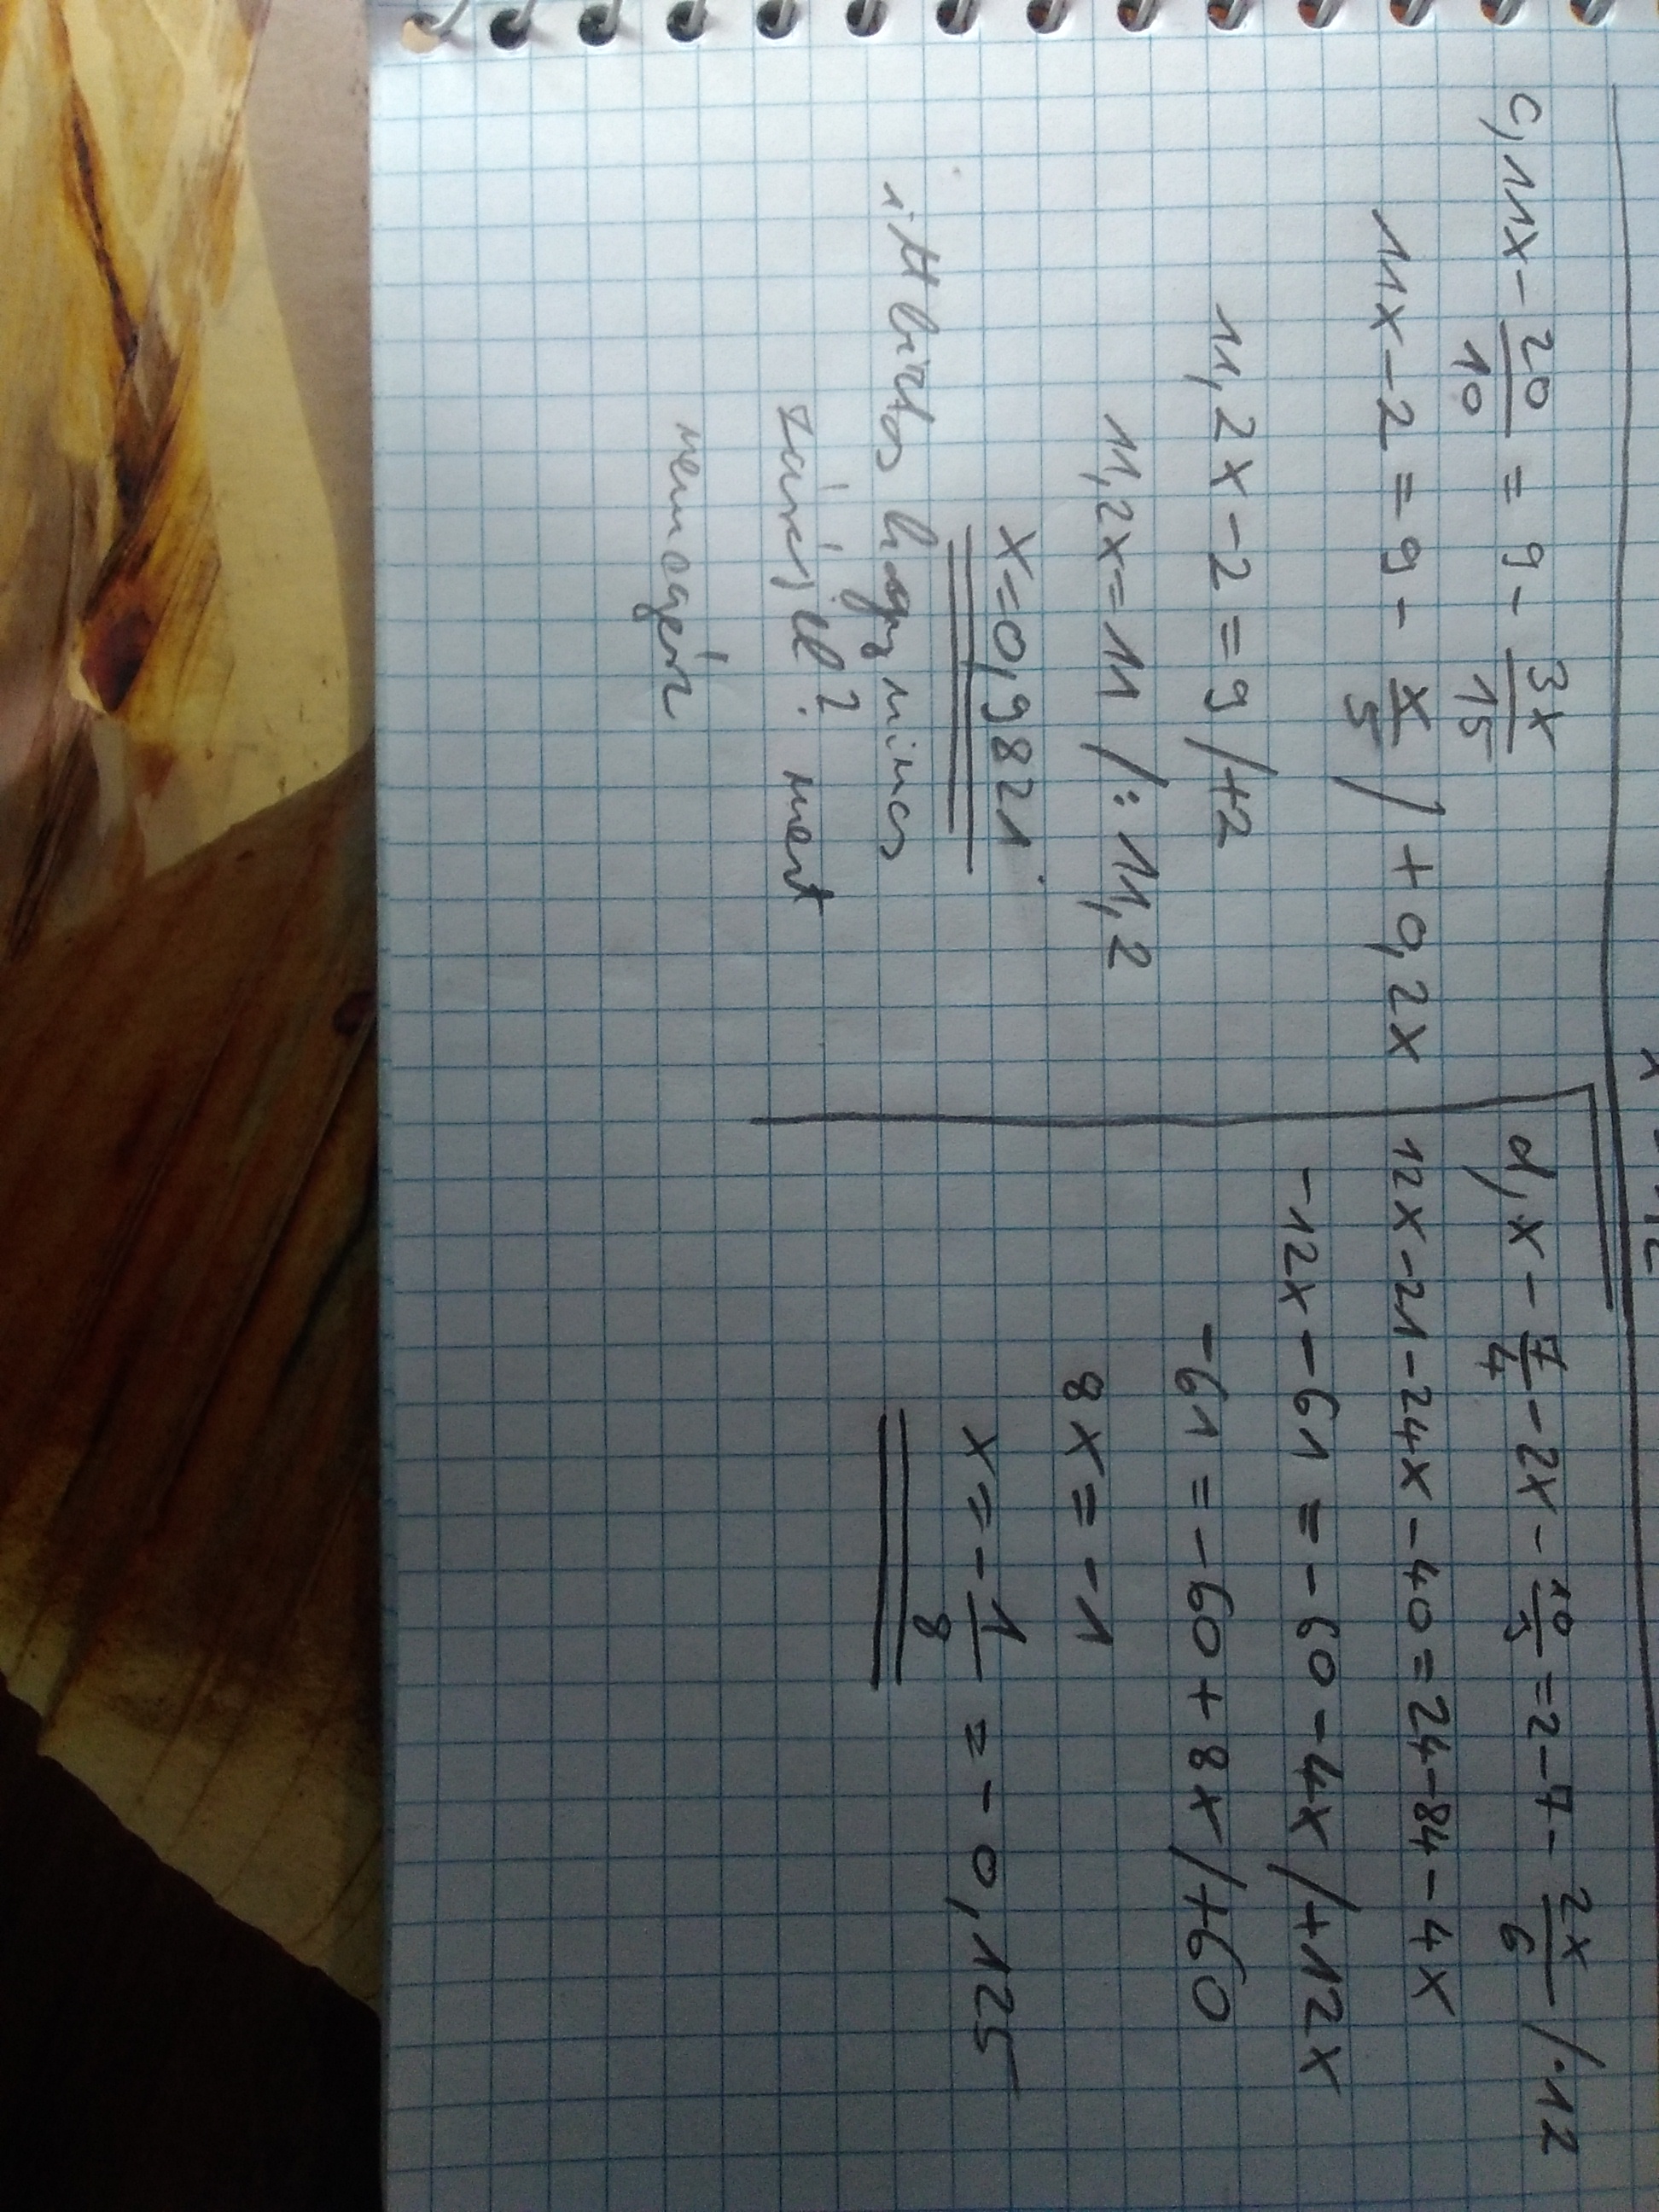 c, 11x - 20/10 = 9 - 3x/15
11x - 2 = 9 - x/5 / + 0,2x
11,2x - 2 = 9 / +2
11,2x = 11 / : 11,2
x = 0,9821
itt biztos hogy nincs
zárójel? mert
nem egész
d, x - 7/4 - 2x - 10/3 = 2 - 7 - 2x/6 / ·12
12x - 21 - 24x - 40 = 24 - 84 - 4x
-12x - 61 = -60 - 4x / +12x
-61 = -60 + 8x / +60
8x = -1
x = - 1/8 = - 0,125